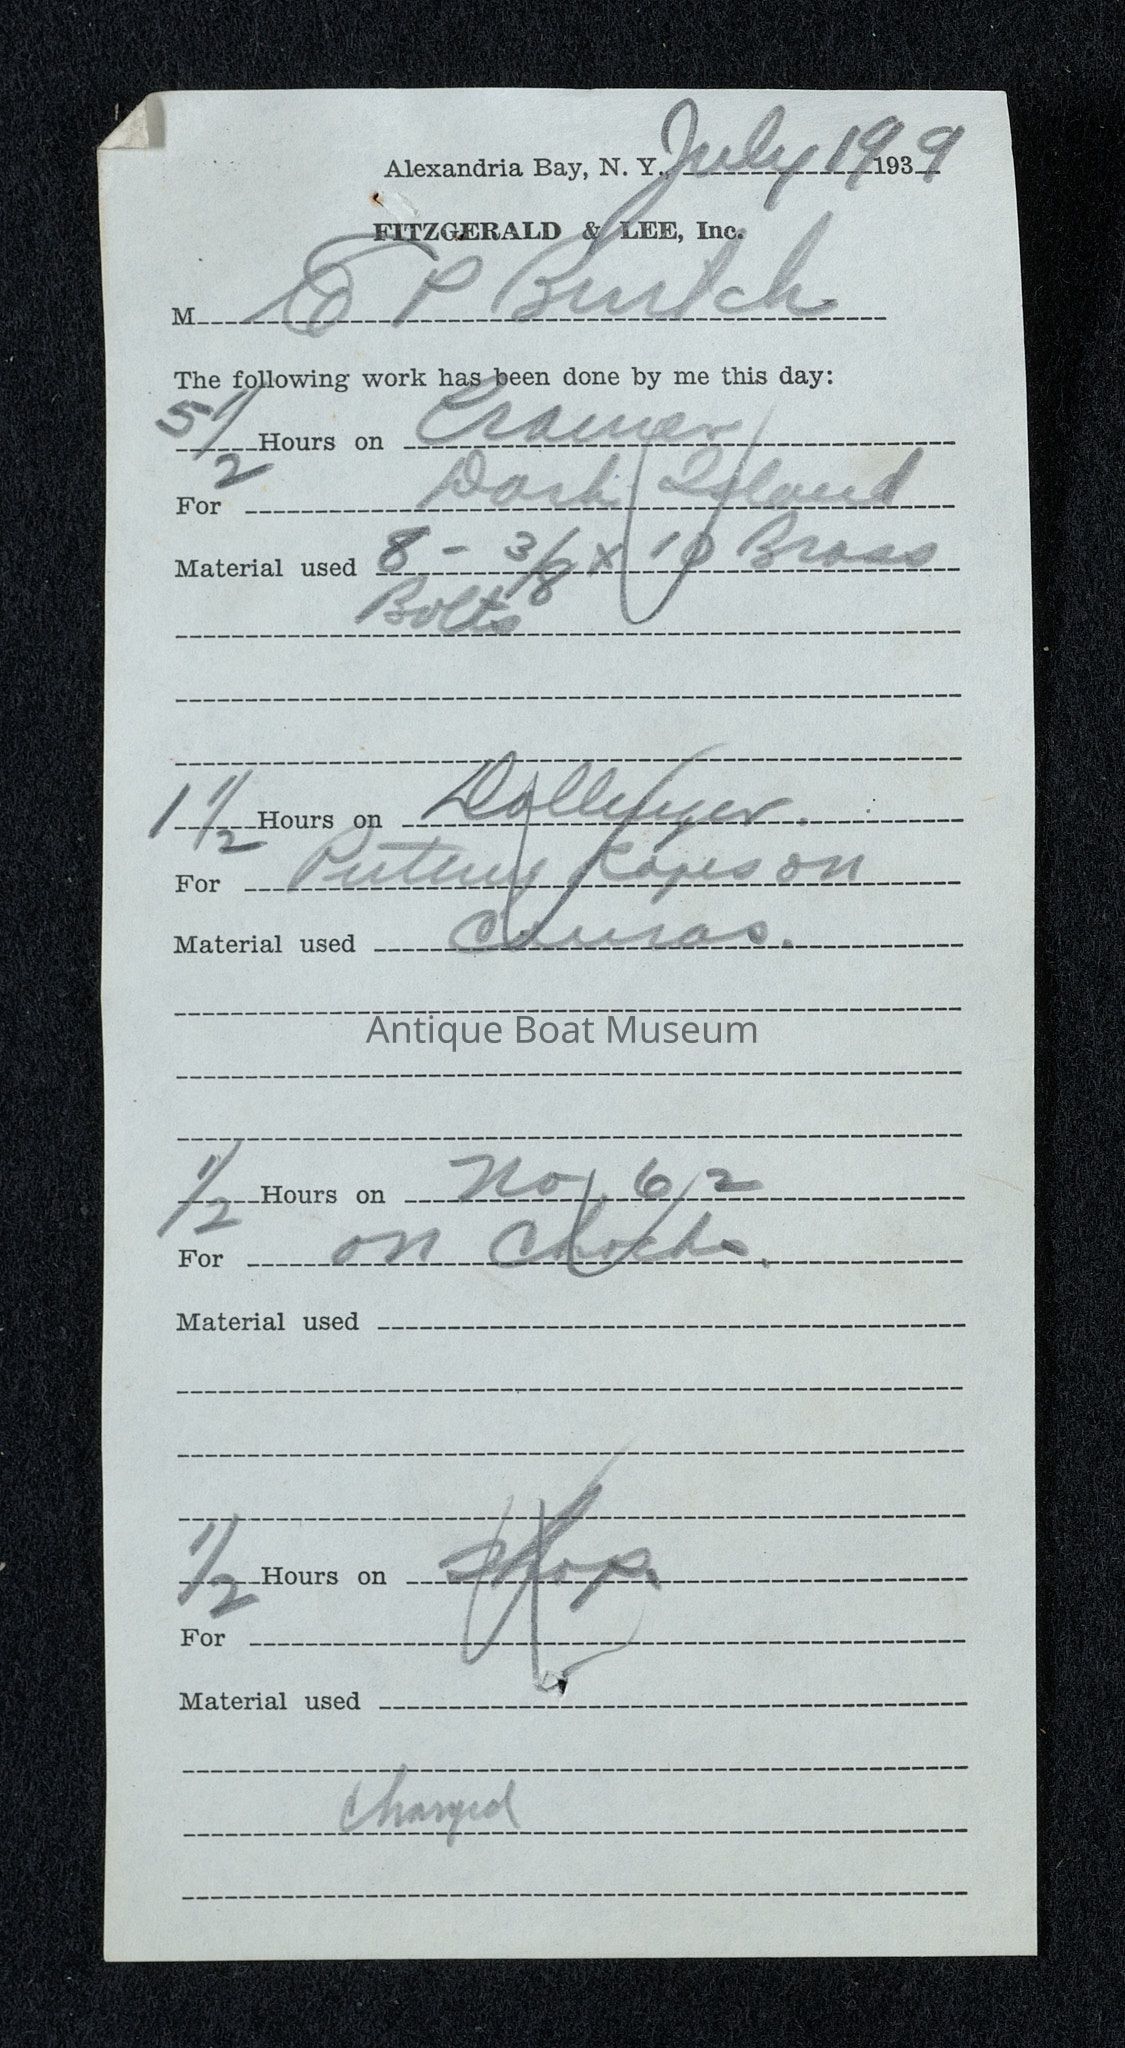 Alexandria Bay, N. Y., July 19 1939
FITZGERALD & LEE, Inc.
M E P Burtch
The following work has been done by me this day:
5 1/2 Hours on Cramer
For Dark Island
Material used 8 - 3/8 x 10 Brass
Bolts
1 1/2 Hours on Dollinger.
For Putting Ropes on
Material used Canvas.
Antique Boat Museum
1/2 Hours on No. 62
For on Chocks.
Material used
1/2 Hours on Shop.
For
Material used
Charged